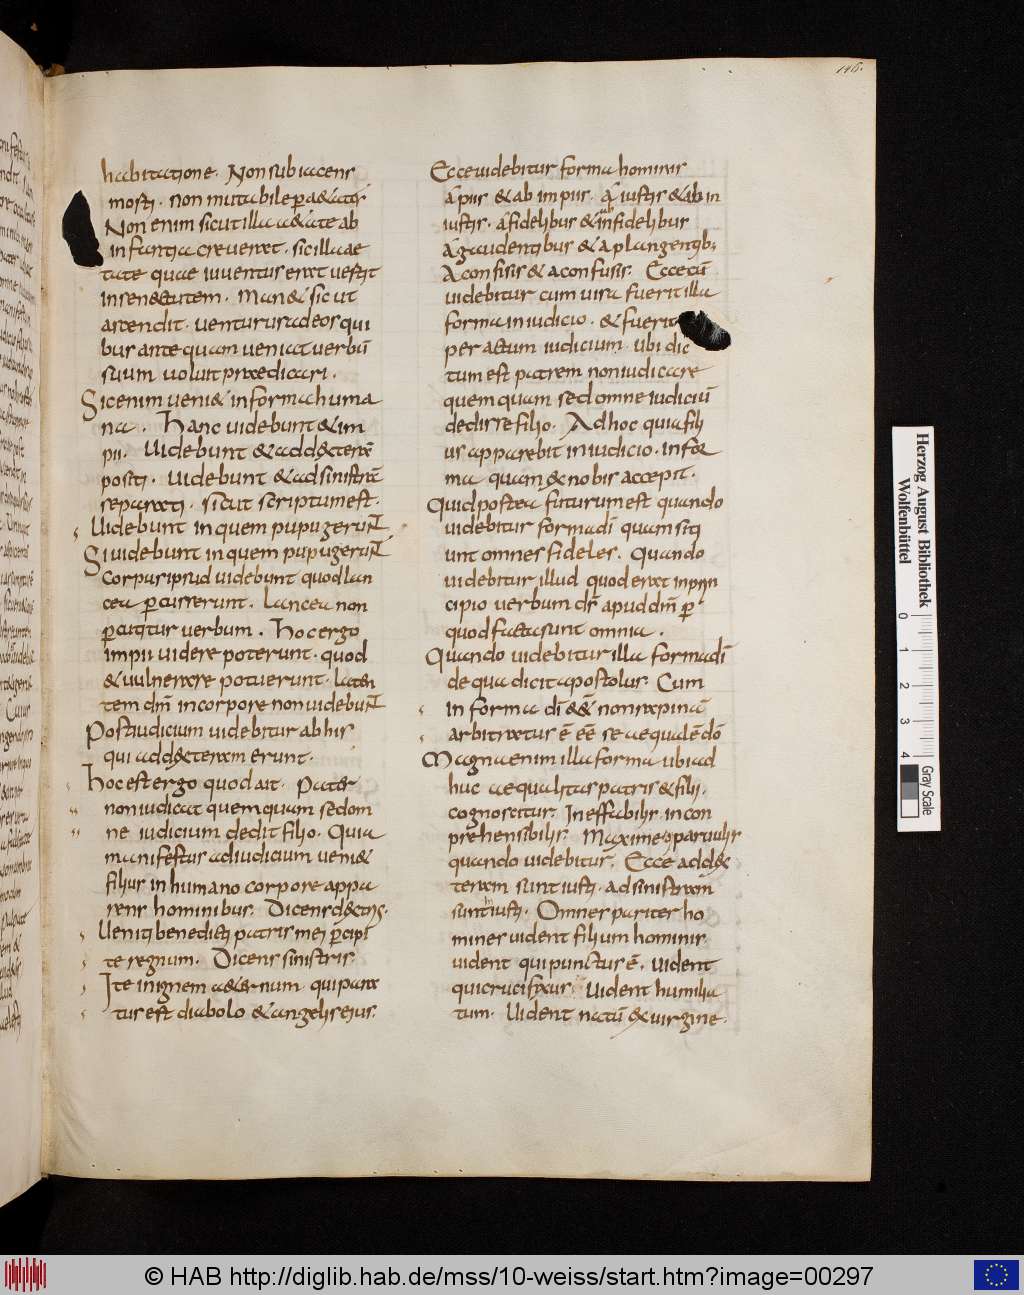 146.
habitatione. Non subiacens
morti. non mutabile p aetatē
Non enim sicut illa aetate ab
infantia creverat. sic illa ae
tate quae iuventus erat vestiit
in senectutem. Manet sicut
artendit. venturus adeos qui
bus antequam veniat verbū
suum voluit praedicari.
Sic enim veniet in forma huma
na. Hanc videbunt et im
pii. Videbunt et ad dexterā
positi. Videbunt et ad sinistrā
separati. sicut scriptum est.
Videbunt in quem pupugerunt
Si videbunt in quem pupugerunt
Corpus ipsud videbunt quod lan
cea pcusserunt. Lancea non
pcutitur verbum. Hoc ergo
impii videre poterunt. quod
et vulnerare potuerunt. laten
tem dm̄ in corpore non videbunt
Post iudicium videbitur ab his
qui ad dexteram erunt.
Hoc est ergo quod ait. Pater
non iudicat quemquam sed om
ne iudicium dedit filio. Quia
manifestus ad iudicium veniet
filius in humano corpore appa
rens hominibus. Dicens dextris.
Veniti benedicti patris mei pcipi
te regnum. Dicens sinistris.
Ite in ignem aeternum qui para
tus est diabolo et angelis eius.
Ecce videbitur forma hominis
a piis et ab impiis. a iustis et ab in
iustis. a fidelibus et infidelibus
a gaudentibus et a plangentib;
A confisis et a confusis. Ecce cū
videbitur cum visa fuerit illa
forma in iudicio. et fuerit
peractum iudicium. ubi dic
tum est patrem non iudicare
quemquam sed omne iudiciū
dedisse filio. Ad hoc quia fili
us apparebit in iudicio. in for
ma quam ex nobis accepit.
Quid postea futurum est quando
videbitur forma dī quam siti
unt omnes fideles. Quando
videbitur illud quod erat in prin
cipio verbum ds̄ apud dm̄ p
quod facta sunt omnia.
Quando videbitur illa forma dī
de qua dicit apostolus. Cum
in forma dī eēt non rapinā
arbitratus ē eē se aequalē dō
Magna enim illa forma ubi ad
huc aequalitas patris et filii.
cognoscitur. Ineffabilis. incon
prehensibilis. Maxime parvulis
quando videbitur. Ecce ad dex
teram sunt iusti. ad sinistram
sunt iniusti. Omnes pariter ho
mines vident filium hominis.
vident qui punctus ē. vident
qui crucifixus. Vident humilia
tum. Vident natū ex virgine.
Herzog August Bibliothek
Wolfenbüttel
0 1 2 3 4
Gray Scale
© HAB http://diglib.hab.de/mss/10-weiss/start.htm?image=00297